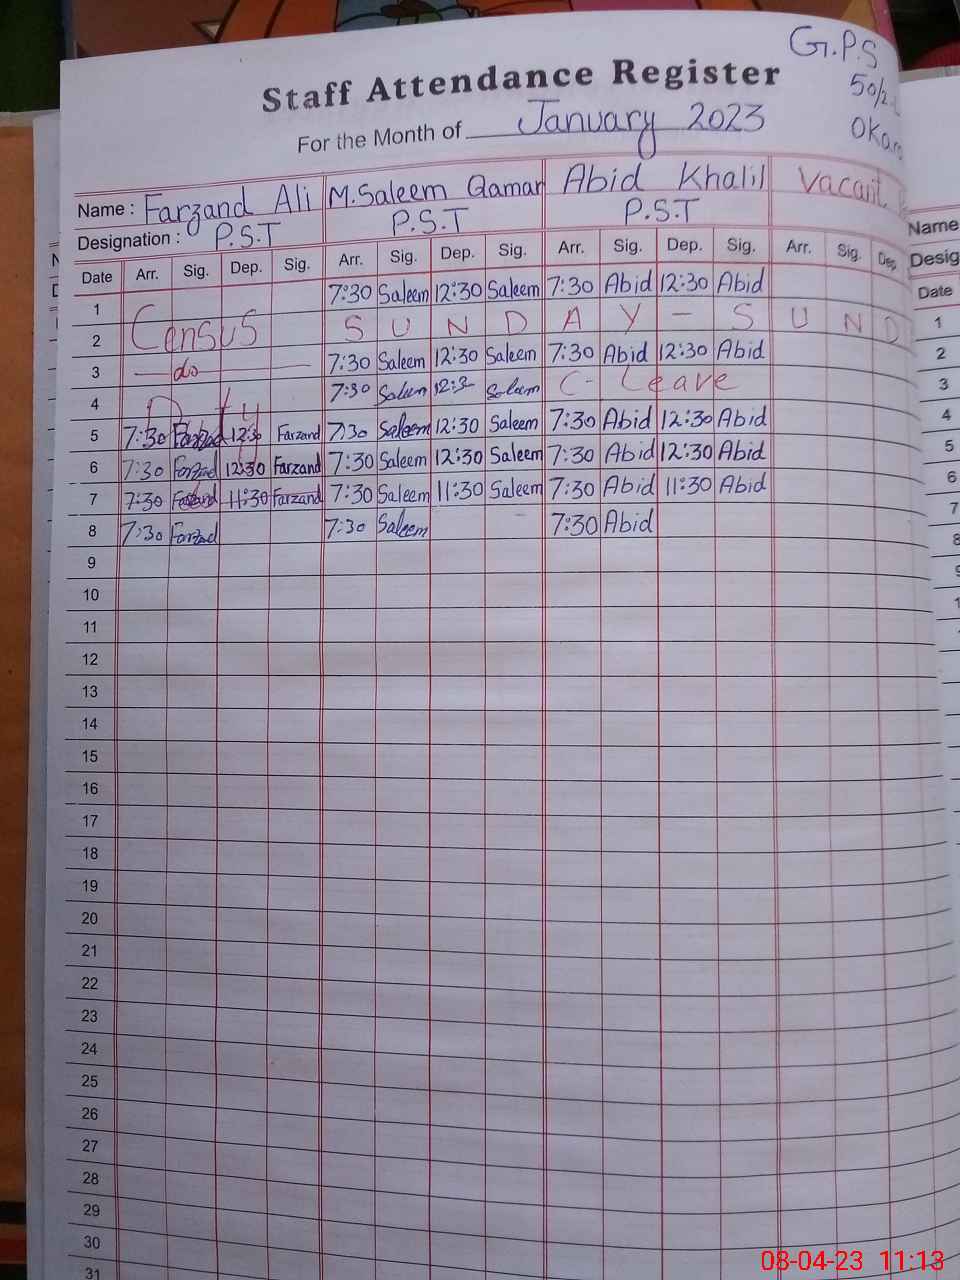 G.P.S
50/2-L
Staff Attendance Register
For the Month of January 2023
Name : Farzand Ali M.Saleem Qamar Abid Khalil Vacant
Designation : P.S.T P.S.T P.S.T
Date Arr. Sig. Dep. Sig. Arr. Sig. Dep. Sig. Arr. Sig. Dep. Sig. Arr. Sig. Dep.
1 7:30 Saleem 12:30 Saleem 7:30 Abid 12:30 Abid
2 Census S U N D A Y - S U N D
3 — do — 7:30 Saleem 12:30 Saleem 7:30 Abid 12:30 Abid
4 Duty 7:30 Saleem 12:3 Saleem C- Leave
5 7:30 Farzad 12:30 Farzand 7:30 Saleem 12:30 Saleem 7:30 Abid 12:30 Abid
6 7:30 Farzad 12:30 Farzand 7:30 Saleem 12:30 Saleem 7:30 Abid 12:30 Abid
7 7:30 Farzand 11:30 Farzand 7:30 Saleem 11:30 Saleem 7:30 Abid 11:30 Abid
8 7:30 Farzad 7:30 Saleem 7:30 Abid
9
10
11
12
13
14
15
16
17
18
19
20
21
22
23
24
25
26
27
28
29
30
31
Name
Desig
Date
1
2
3
4
5
6
7
8
08-04-23 11:13